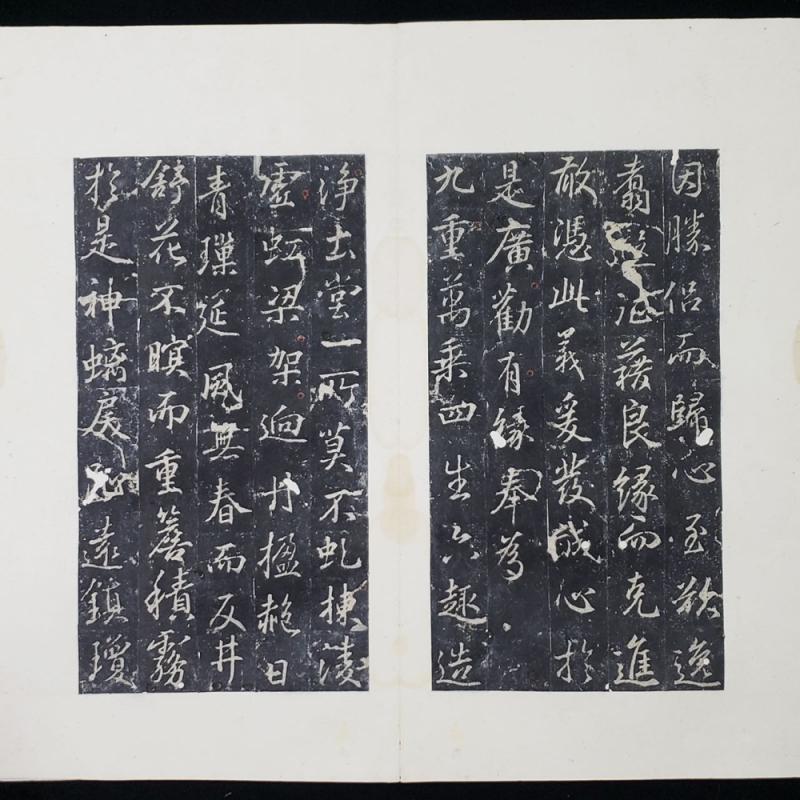 因勝侶而歸心至於逸
翥證藉良緣而克進
敢憑此義爰發誠心於
是廣勸有緣奉為
九重萬乘四生六趣造
淨土堂一所莫不虬棟凌
虛虹梁架迥丹楹赩日
青璅延風無春而反井
舒花不暝而重簷積霧
於是神螭戾止遠鎮瓊